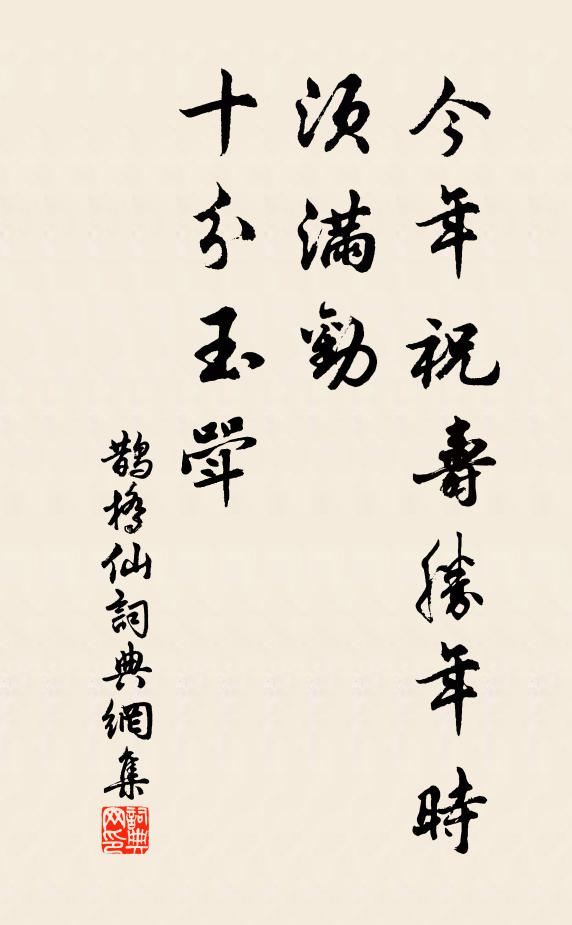 今年祝壽勝年時
須滿勸
十分玉斝
鵲橋仙詞典網集
詞典网印